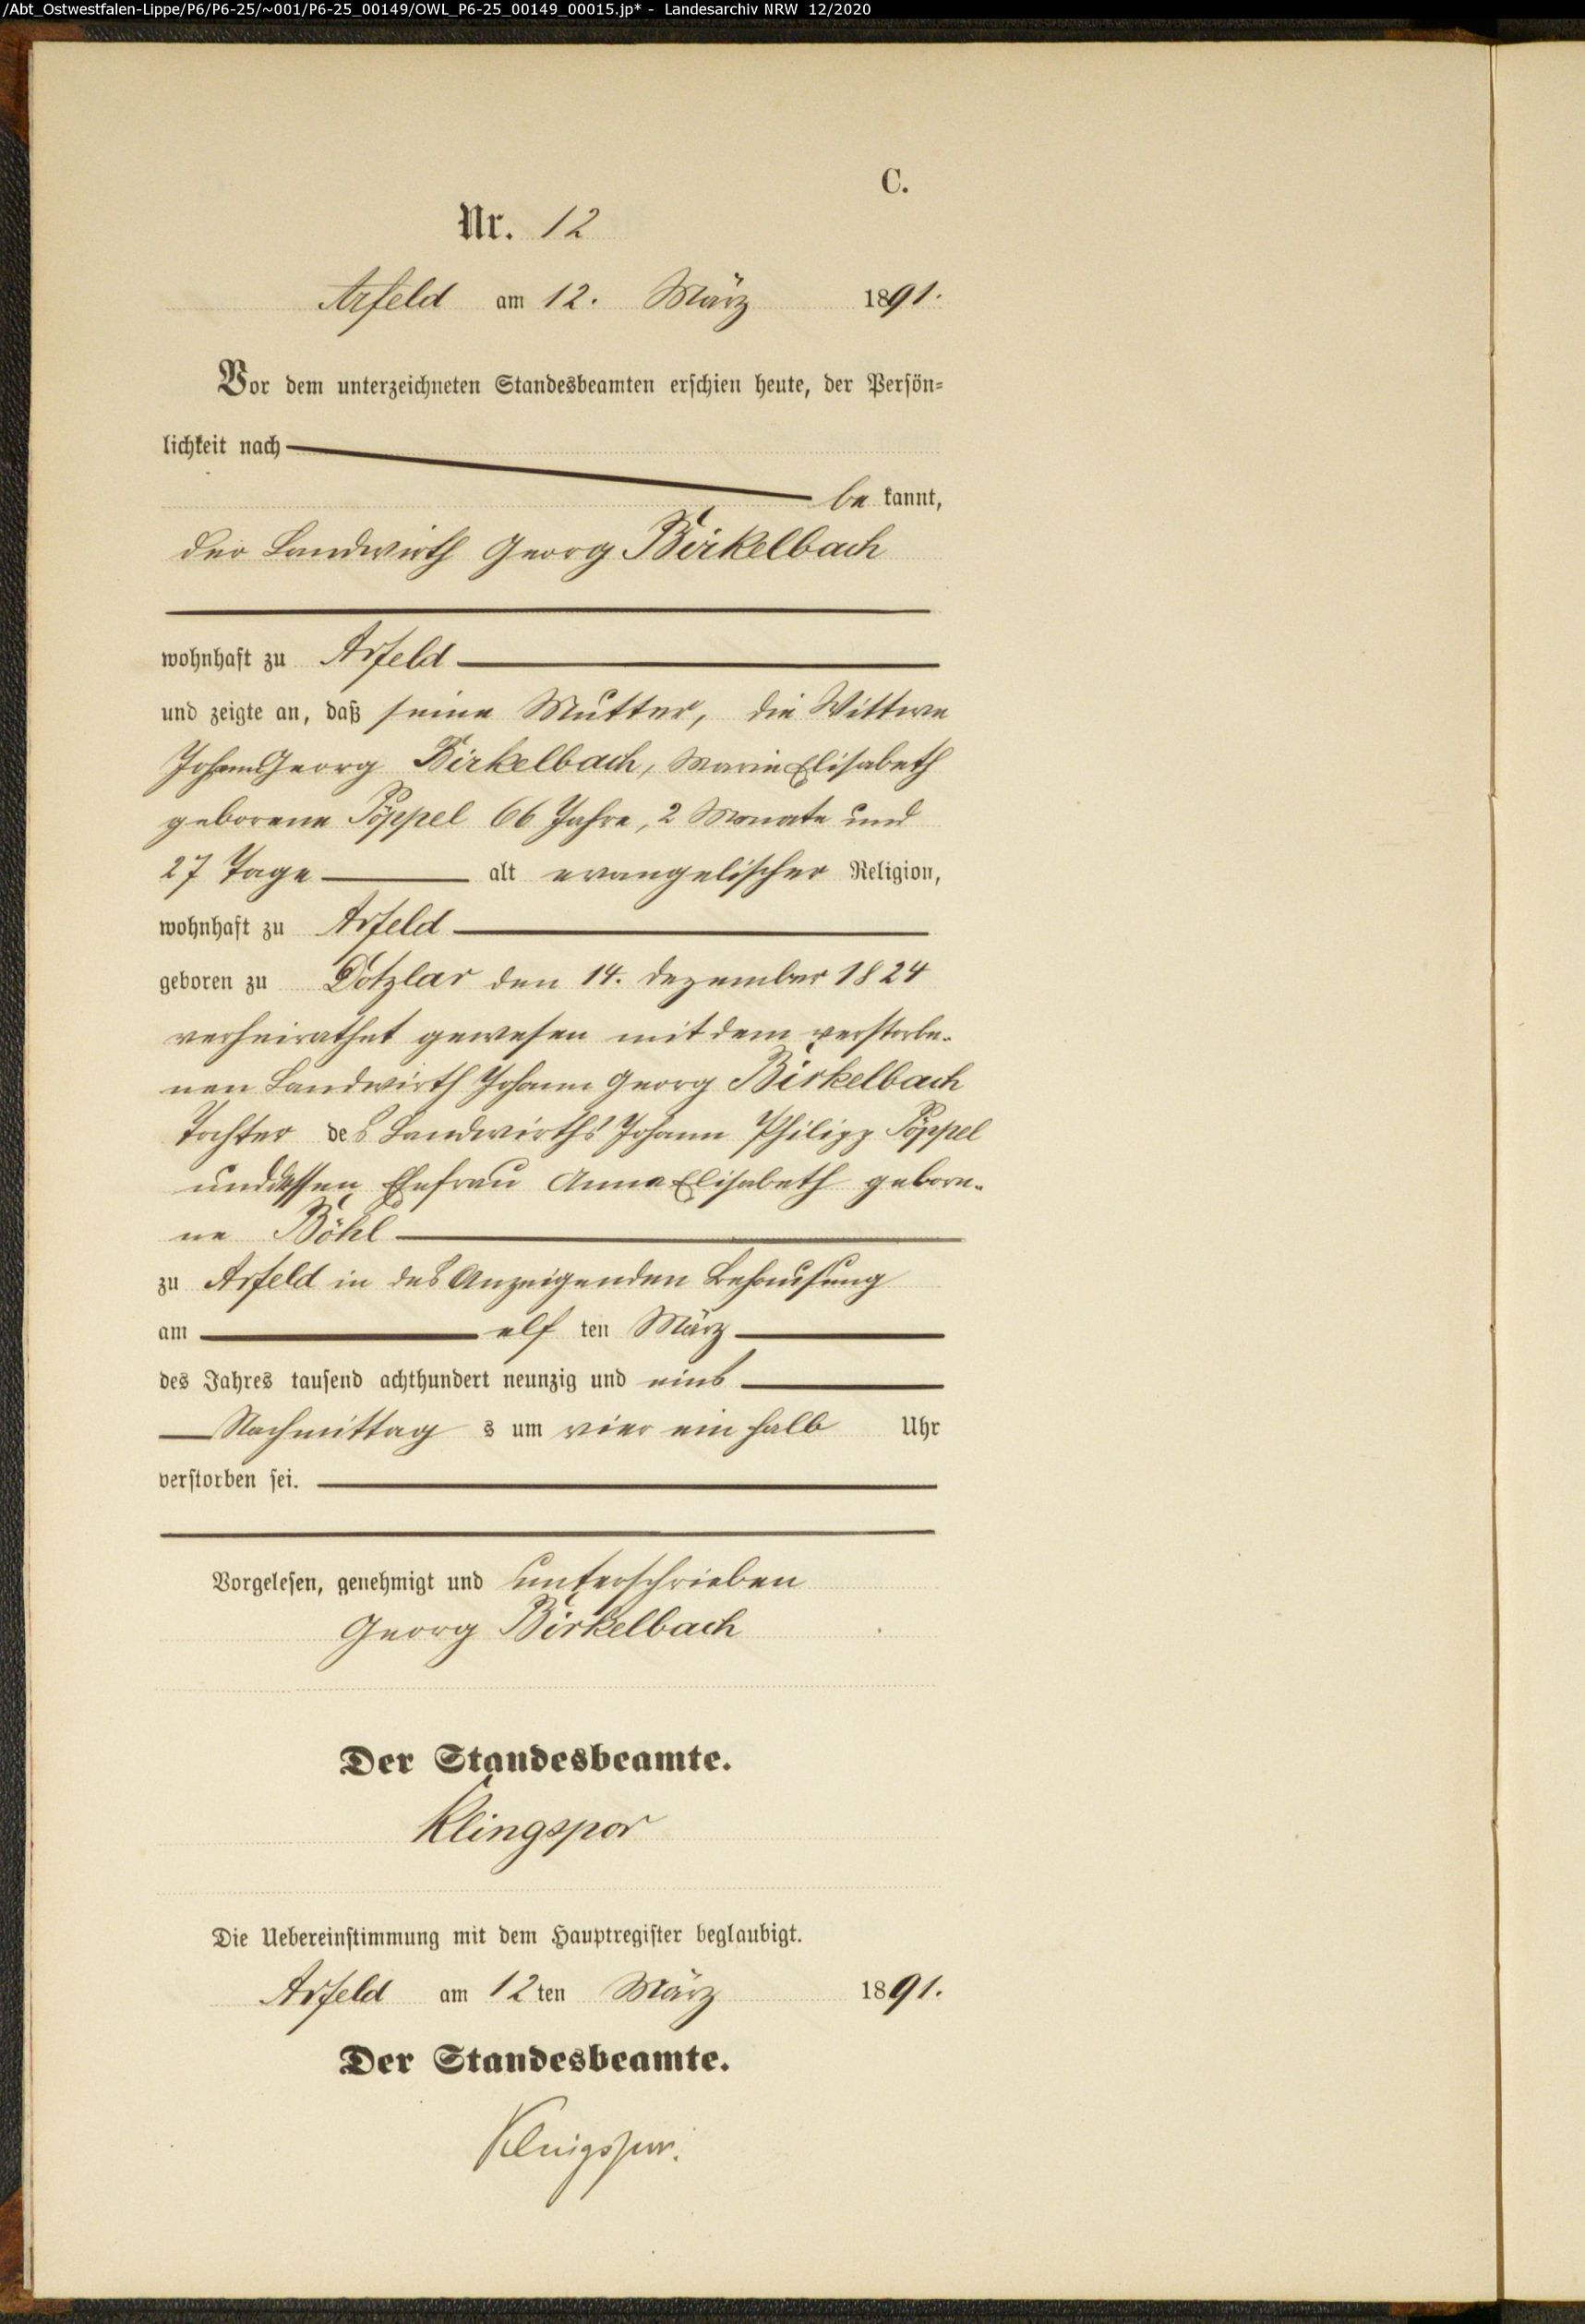 /Abt_Ostwestfalen-Lippe/P6/P6-25/~001/P6-25_00149/OWL_P6-25_00149_00015.jp* - Landesarchiv NRW 12/2020
C.
Nr. 12
Arfeld am 12. März 1891.
Vor dem unterzeichneten Standesbeamten erschien heute, der Persön-
lichkeit nach
be kannt,
der Landwirth Georg Birkelbach
wohnhaft zu Arfeld
und zeigte an, daß seine Mutter, die Wittwe
Johann Georg Birkelbach, Marie Elisabeth
geborene Pöppel 66 Jahre, 2 Monate und
27 Tage alt evangelischer Religion,
wohnhaft zu Arfeld
geboren zu Dotzlar den 14. Dezember 1824
verheirathet gewesen mit dem verstorbe-
nen Landwirth Johann Georg Birkelbach
Tochter des Landwirths Johann Philipp Pöppel
und dessen Ehefrau Anna Elisabeth gebore-
ne Böhl
zu Arfeld in des Anzeigenden Behausung
am elf ten März
des Jahres tausend achthundert neunzig und eins
Nachmittag s um vier ein halb Uhr
verstorben sei.
Vorgelesen, genehmigt und unterschrieben
Georg Birkelbach
Der Standesbeamte.
Klingspor
Die Uebereinstimmung mit dem Hauptregister beglaubigt.
Arfeld am 12 ten März 1891.
Der Standesbeamte.
Klingspor.